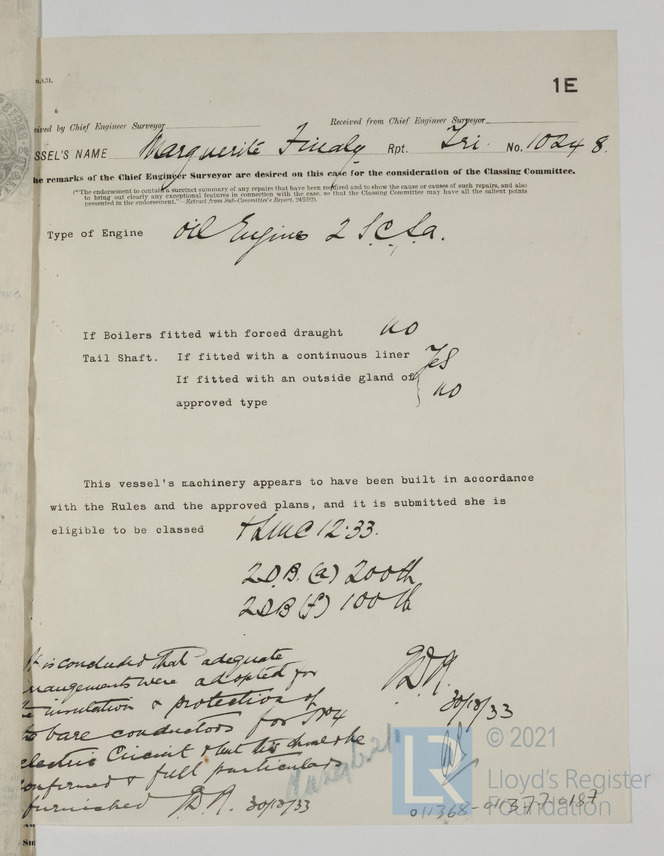 1E
ived by Chief Engineer Surveyor
Received from Chief Engineer Surveyor
SSEL'S NAME Marguerite Finaly Rpt. Tri. No. 10248.
he remarks of the Chief Engineer Surveyor are desired on this case for the consideration of the Classing Committee.
(*The endorsement to contain a succinct summary of any repairs that have been required and to show the cause or causes of such repairs, and also
to bring out clearly any exceptional features in connection with the case, so that the Classing Committee may have all the salient points
presented in the endorsement."—Extract from Sub-Committee's Report,
Type of Engine Oil Engines 2 S.C.S.a.
If Boilers fitted with forced draught no
Tail Shaft. If fitted with a continuous liner Yes
If fitted with an outside gland of
approved type no
This vessel's machinery appears to have been built in accordance
with the Rules and the approved plans, and it is submitted she is
eligible to be classed +LMC 12.33.
2 D.B. (a) 200 lb
2 DB (f) 100 lb
It is concluded that adequate
rrangements were adopted for
insulation & protection of
bare conductors for
lectric Circuit & that this should be
onfirmed & full particulars
furnished 30/12/33
30/12/33
© 2021
LR
Lloyd's Register
Foundation
011368-011377-0187